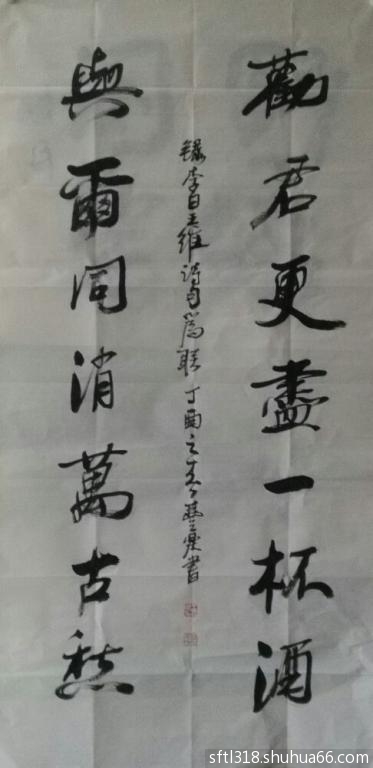 勸君更盡一杯酒
錄李白王維詩句為联丁酉之春
書
與爾同消萬古愁
sftl318.shuhua66.com